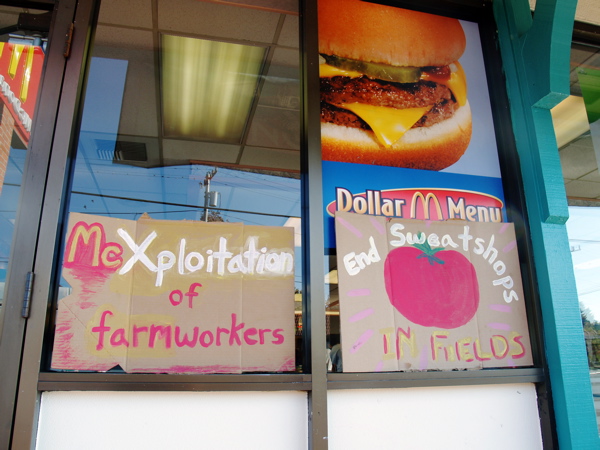 Dollar M Menu
McXploitation
of
farmworkers
End Sweatshops
IN FiELDS